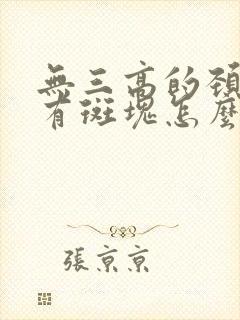 無三高的頸
有斑塊怎麼
張京京